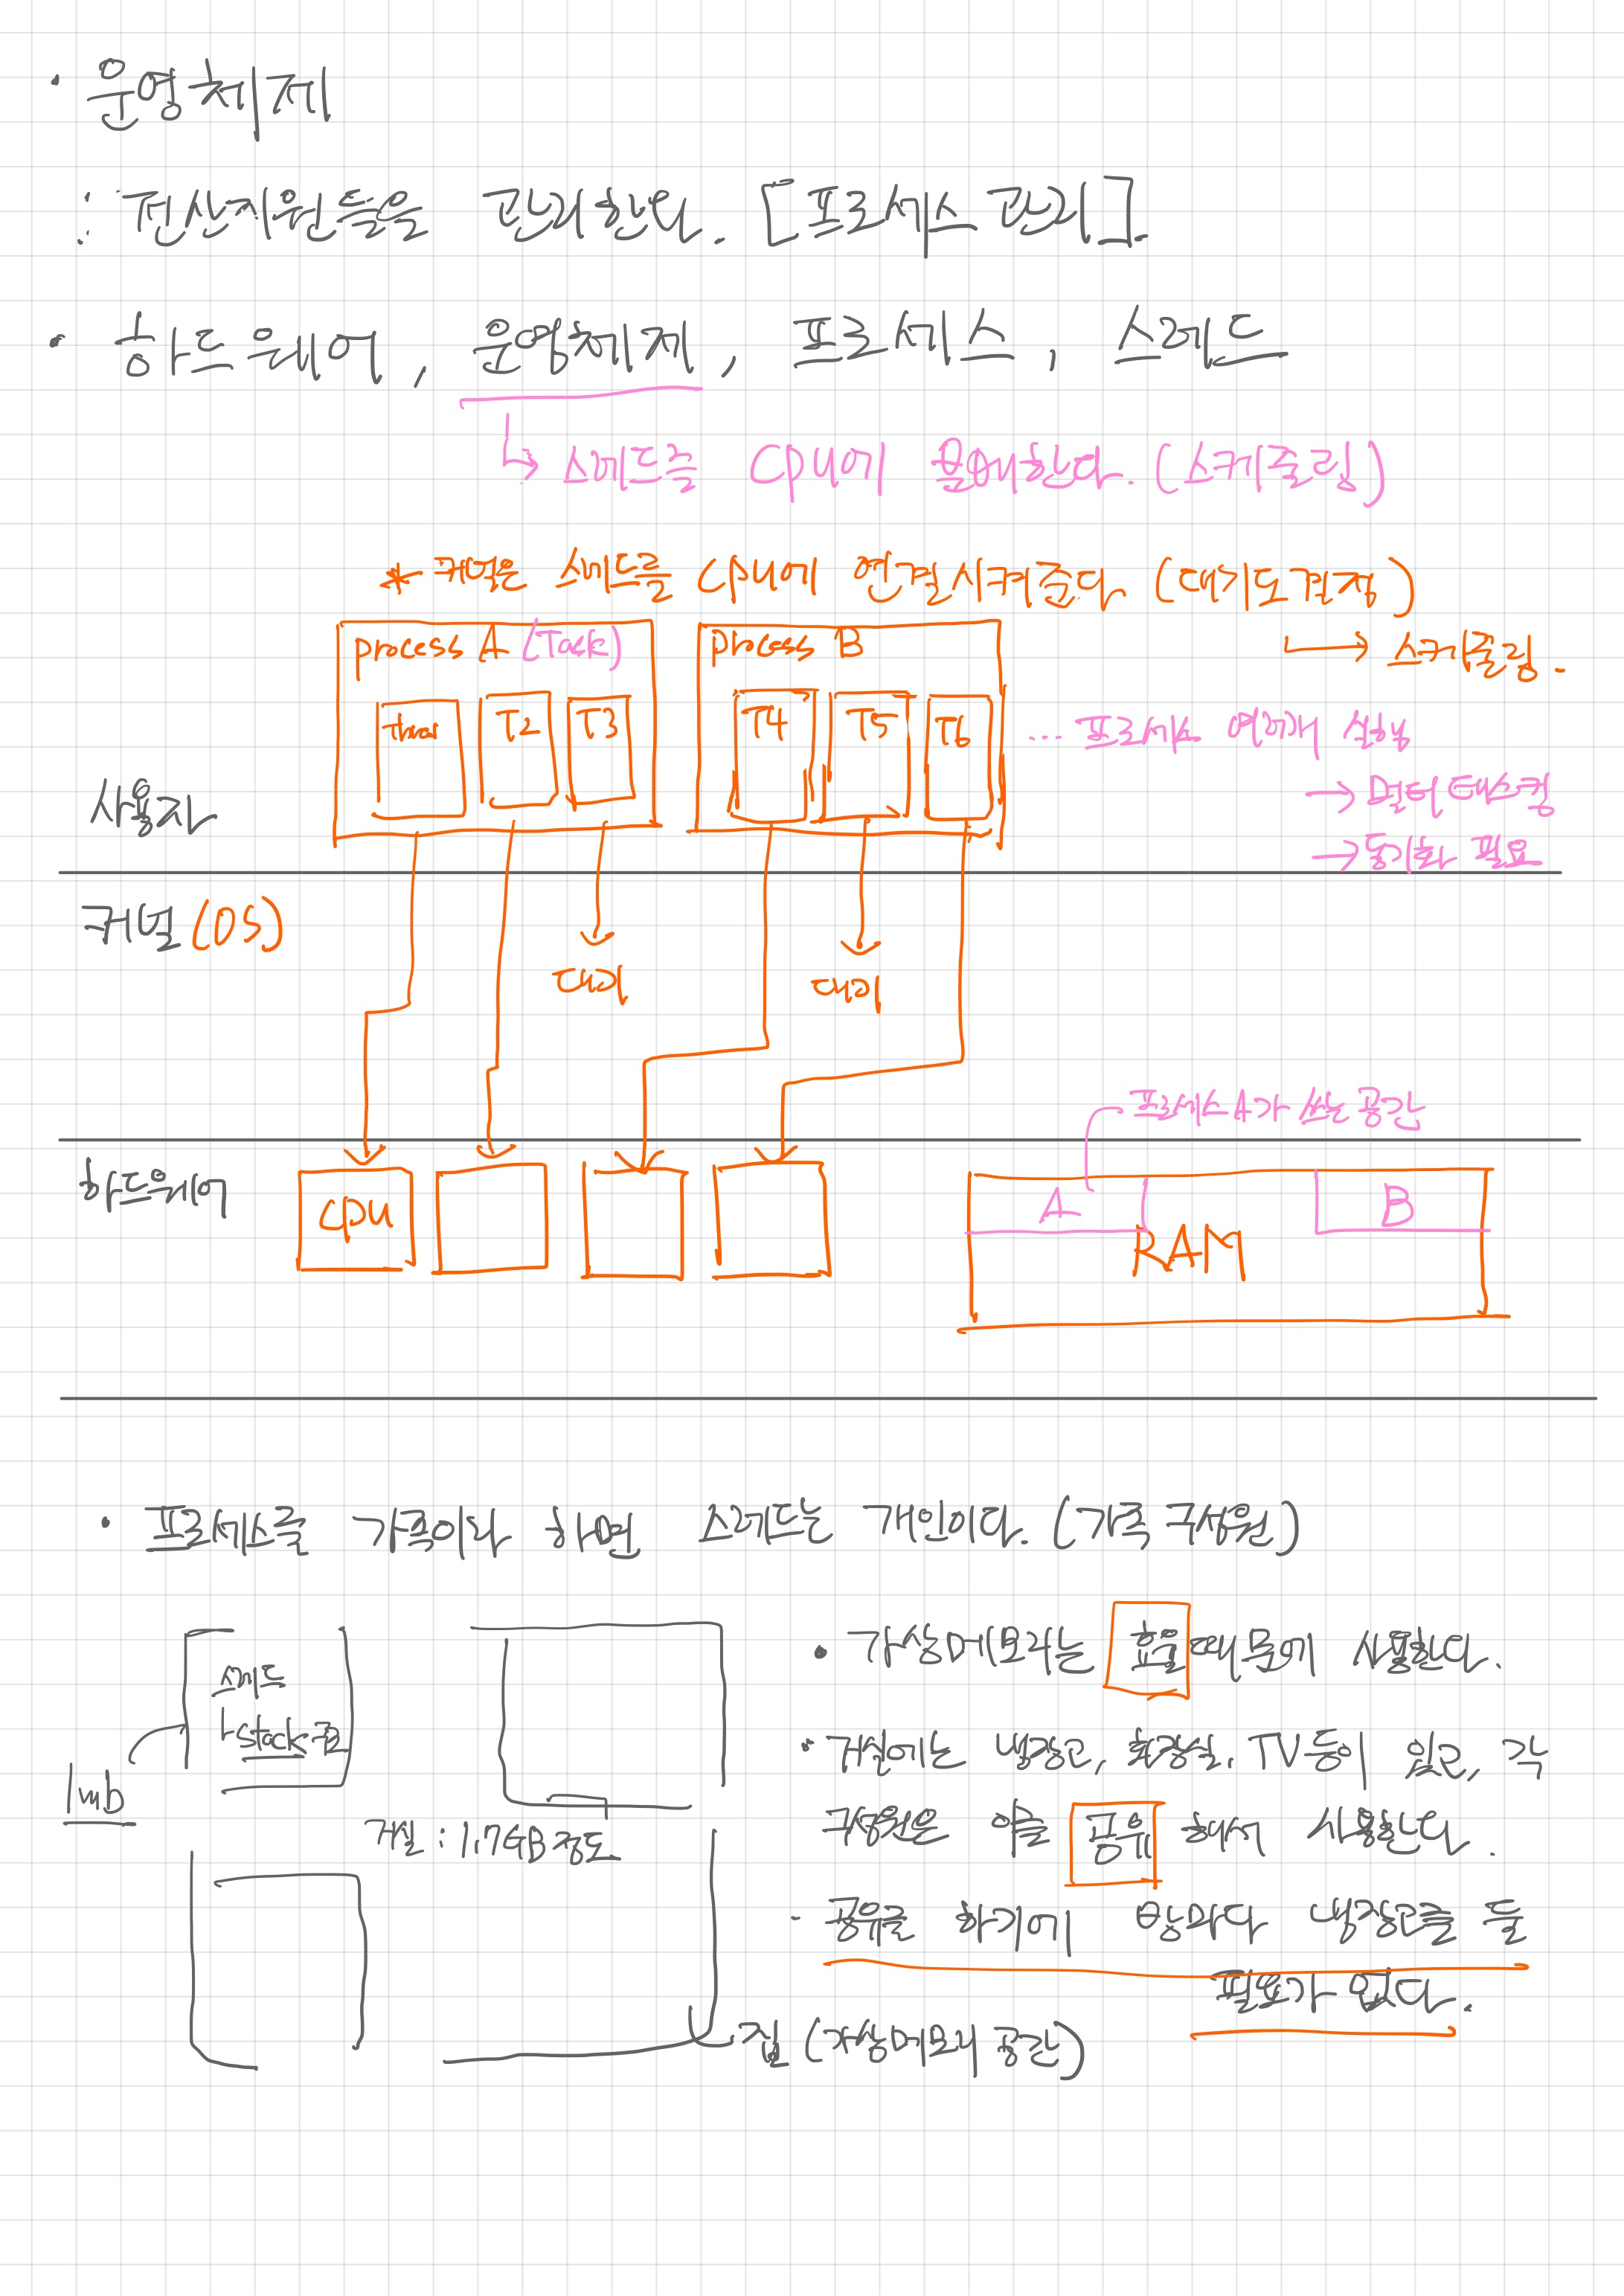 · 운영체제
: 전산자원들을 관리한다. [프로세스 관리].
· 하드웨어, 운영체제, 프로세스, 스레드
↳ 스레드를 CPU에 분배한다. (스케줄링)
* 커널은 스레드를 CPU에 연결시켜준다 (대기도 결정)
→ 스케줄링.
process A (Task)
process B
T2
T3
T4
T5
T6
... 프로세스 여러개 실행
→ 멀티 태스킹
→ 동기화 필요
사용자
커널 (OS)
대기
대기
프로세스 A가 쓰는 공간
하드웨어
CPU
A
B
RAM
· 프로세스를 가족이라 하면 스레드는 개인이다. (가족 구성원)
스레드
stack
1mb
거실 : 1.7GB 정도
집 (가상 메모리 공간)
· 가상메모리는 효율 때문에 사용한다.
· 거실에는 냉장고, 화장실, TV 등이 있고, 각
구성원은 이를 공유 해서 사용한다.
· 공유를 하기에 방마다 냉장고를 둘
필요가 없다.